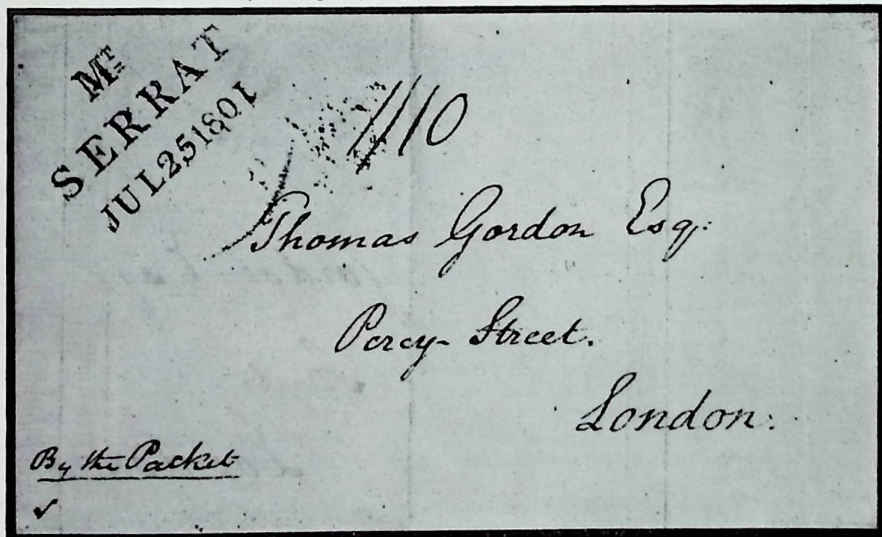 Mᵀ
SERRAT
JUL 25 1801
1/10
Thomas Gordon Esqr:
Percy-Street.
London:
By the Packet